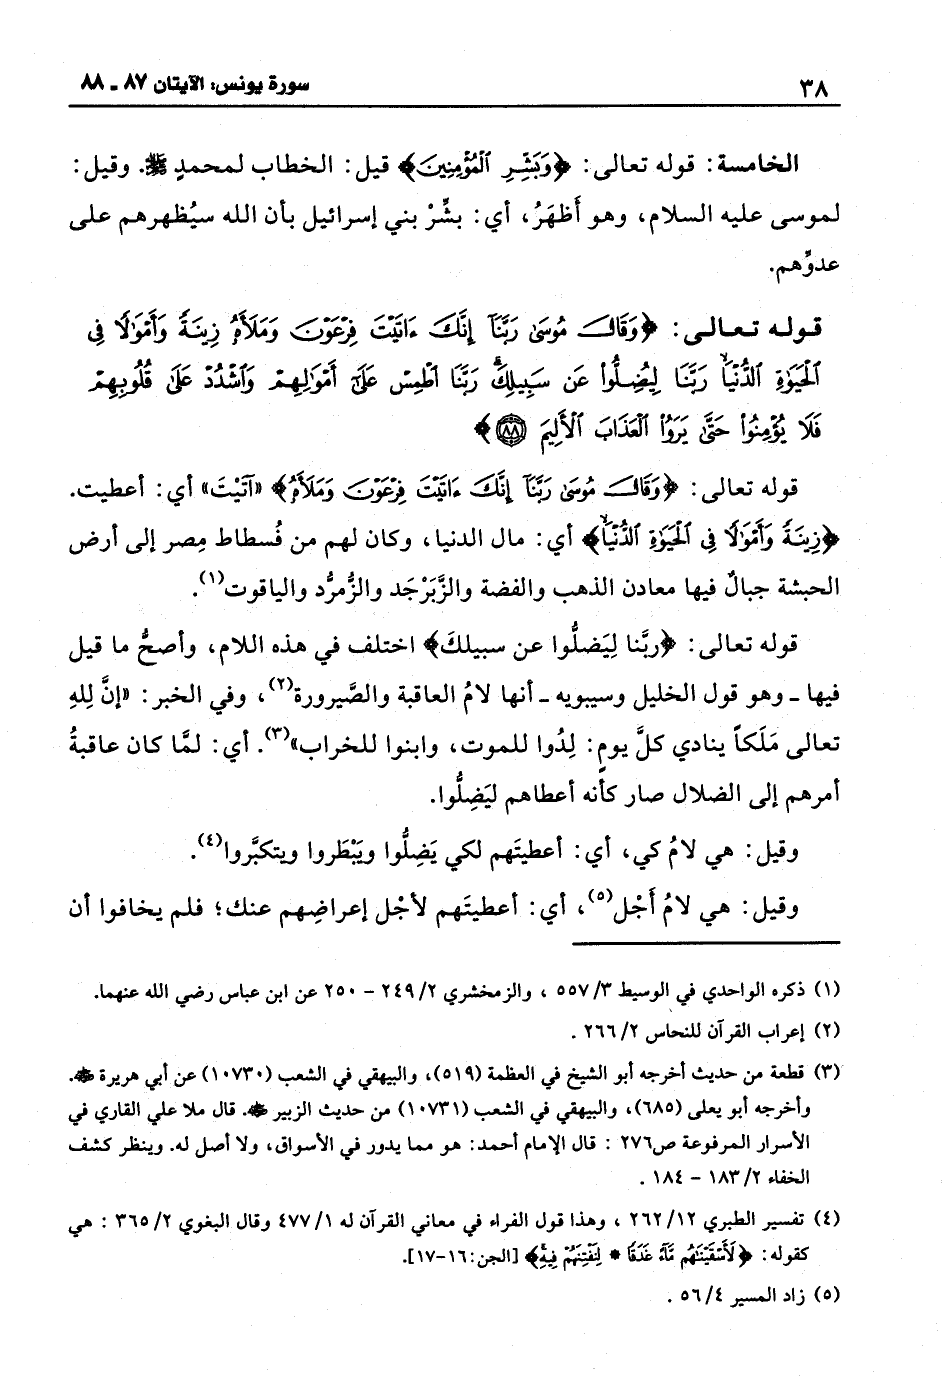 ٣٨ سورة يونس: الآيتان ٨٧ ـ ٨٨
الخامسة: قوله تعالى: ﴿وَبَشِّرِ ٱلْمُؤْمِنِينَ﴾ قيل: الخطاب لمحمدٍ ﷺ. وقيل:
لموسى عليه السلام، وهو أَظهَرُ، أي: بشِّرْ بني إسرائيل بأن الله سيُظهرهم على
عدوِّهم.
قوله تعالى: ﴿وَقَالَ مُوسَىٰ رَبَّنَآ إِنَّكَ ءَاتَيْتَ فِرْعَوْنَ وَمَلَأَهُۥ زِينَةً وَأَمْوَٰلًا فِى
ٱلْحَيَوٰةِ ٱلدُّنْيَا رَبَّنَا لِيُضِلُّوا۟ عَن سَبِيلِكَ رَبَّنَا ٱطْمِسْ عَلَىٰٓ أَمْوَٰلِهِمْ وَٱشْدُدْ عَلَىٰ قُلُوبِهِمْ
فَلَا يُؤْمِنُوا۟ حَتَّىٰ يَرَوُا۟ ٱلْعَذَابَ ٱلْأَلِيمَ ٨٨﴾
قوله تعالى: ﴿وَقَالَ مُوسَىٰ رَبَّنَآ إِنَّكَ ءَاتَيْتَ فِرْعَوْنَ وَمَلَأَهُ﴾ «آتَيْتَ» أي: أعطيت.
﴿زِينَةً وَأَمْوَٰلًا فِى ٱلْحَيَوٰةِ ٱلدُّنْيَا﴾ أي: مال الدنيا، وكان لهم من فُسطاط مِصر إلى أرض
الحبشة جبالٌ فيها معادن الذهب والفضة والزَّبَرْجَد والزُّمرُّد والياقوت(١).
قوله تعالى: ﴿ربَّنا لِيَضلُّوا عن سبيلكَ﴾ اختلف في هذه اللام، وأصحُّ ما قيل
فيها ـ وهو قول الخليل وسيبويه ـ أنها لامُ العاقبة والصَّيرورة(٢)، وفي الخبر: «إنَّ لِلهِ
تعالى مَلَكاً ينادي كلَّ يومٍ: لِدُوا للموت، وابنوا للخراب»(٣). أي: لمَّا كان عاقبةُ
أمرهم إلى الضلال صار كأنه أعطاهم ليَضِلُّوا.
وقيل: هي لامُ كي، أي: أعطيتَهم لكي يَضِلُّوا ويَبْطَروا ويتكبَّروا(٤).
وقيل: هي لامُ أَجْل(٥)، أي: أعطيتَهم لأجْل إعراضِهم عنك؛ فلم يخافوا أن
(١) ذكره الواحدي في الوسيط ٥٥٧/٣ ، والزمخشري ٢٤٩/٢ - ٢٥٠ عن ابن عباس رضي الله عنهما.
(٢) إعراب القرآن للنحاس ٢٦٦/٢ .
(٣) قطعة من حديث أخرجه أبو الشيخ في العظمة (٥١٩)، والبيهقي في الشعب (١٠٧٣٠) عن أبي هريرة ﷺ.
وأخرجه أبو يعلى (٦٨٥)، والبيهقي في الشعب (١٠٧٣١) من حديث الزبير ﷺ. قال ملا علي القاري في
الأسرار المرفوعة ص٢٧٦ : قال الإمام أحمد: هو مما يدور في الأسواق، ولا أصل له. وينظر كشف
الخفاء ١٨٣/٢ - ١٨٤ .
(٤) تفسير الطبري ٢٦٢/١٢ ، وهذا قول الفراء في معاني القرآن له ٤٧٧/١ وقال البغوي ٣٦٥/٢ : هي
كقوله: ﴿لَأَسْقَيْنَٰهُم مَّآءً غَدَقًا * لِنَفْتِنَهُمْ فِيهِ﴾ [الجن:١٦-١٧].
(٥) زاد المسير ٥٦/٤ .